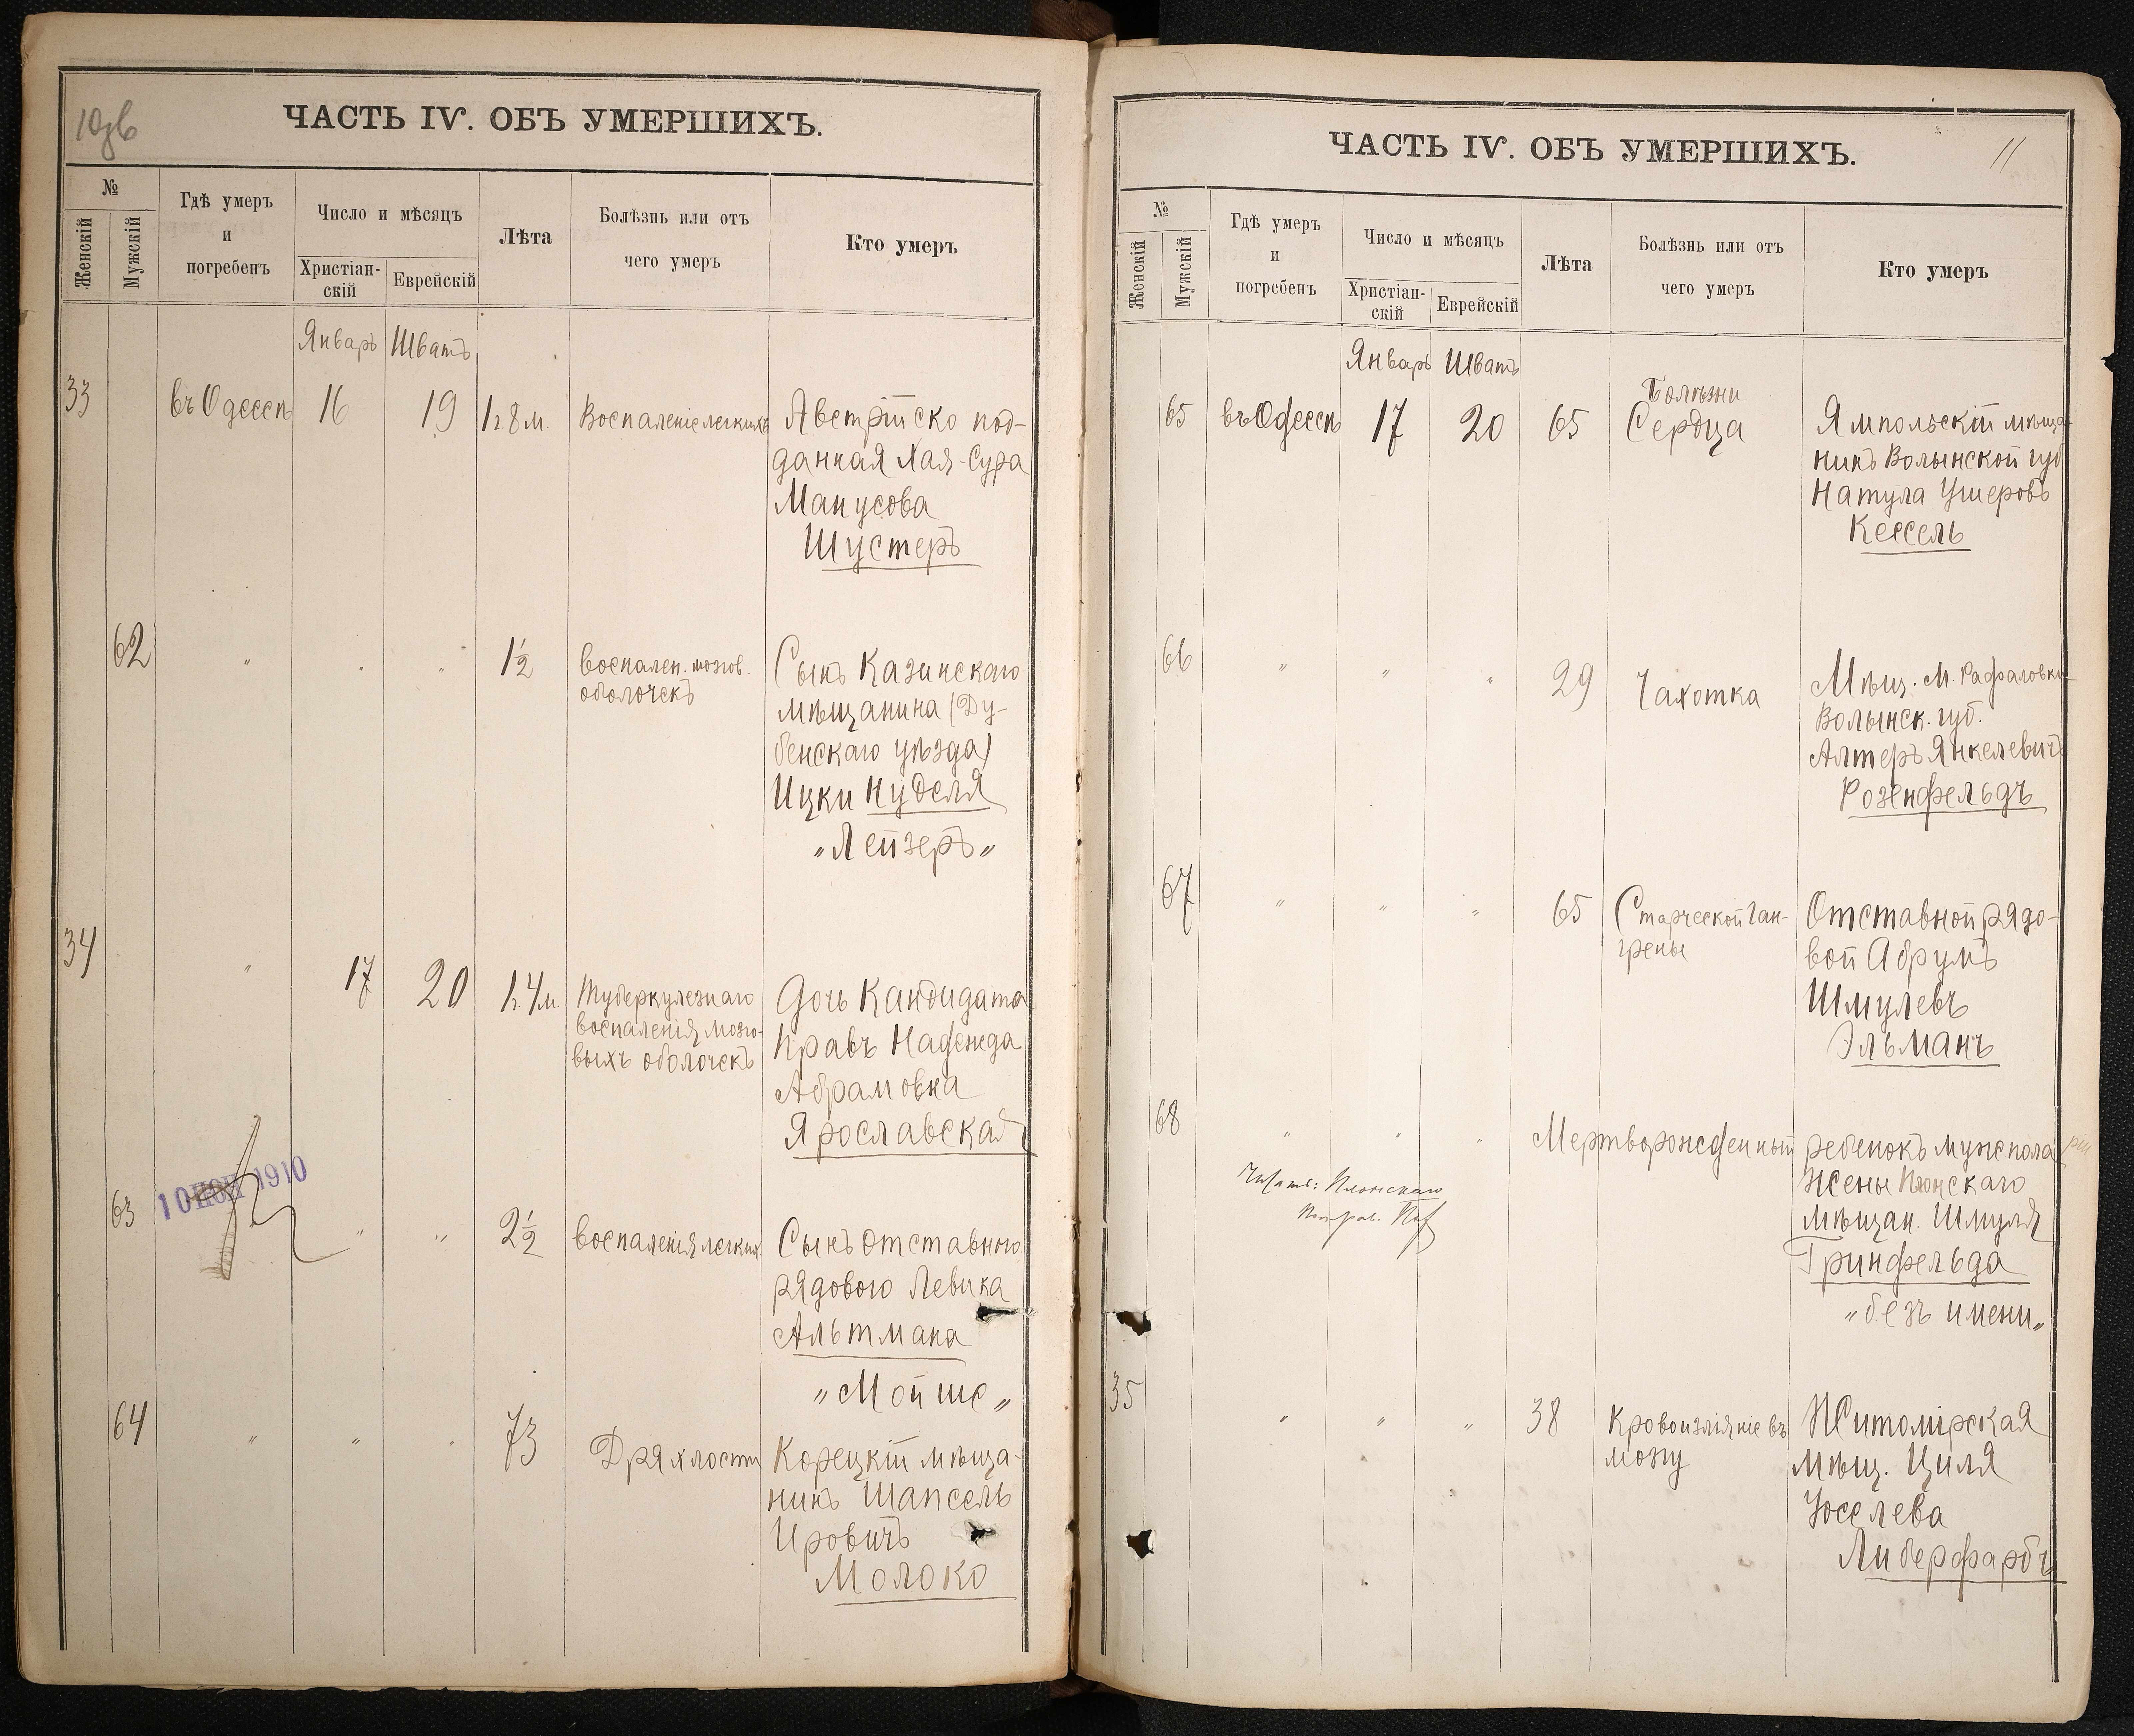 10 об
ЧАСТЬ IV. ОБЪ УМЕРШИХЪ.
№
Женскій
Мужскій
Гдѣ умеръ
и
погребенъ
Число и мѣсяцъ
Христіан-
скій
Еврейскій
Лѣта
Болѣзнь или отъ
чего умеръ
Кто умеръ
Январь Шватъ
33 въ Одессѣ 16 19 1г. 8 м. Воспаленіе легкихъ Австрійско под-
данная Хая-Сура
Манусова
Шустеръ
62 " " " 1½ воспален. мозгов. Сынъ Казинскаго
оболочекъ мѣщанина (Ду-
бенскаго уѣзда)
Ицки Нуделя
"Лейзеръ"
34 " 17 20 1г. 4 м. Туберкулезнаго Дочь Кандидата
воспаленія мозго- Правъ Надежда
выхъ оболочекъ Абрамовна
Ярославская
10 1910
63 " " 2½ воспаленія легкихъ Сынъ отставного
рядового Левика
Альтмана
"Мойше"
64 " " " 73 Дряхлости Корецкій мѣща-
нинъ Шапсель
Ировичъ
Молоко
11
ЧАСТЬ IV. ОБЪ УМЕРШИХЪ.
№
Женскій
Мужскій
Гдѣ умеръ
и
погребенъ
Число и мѣсяцъ
Христіан-
скій
Еврейскій
Лѣта
Болѣзнь или отъ
чего умеръ
Кто умеръ
Январь Шватъ
Болѣзни
65 въ Одессѣ 17 20 65 Сердца Ямпольскій мѣща-
нинъ Волынской губ
Натула Ушеровъ
Кессель
66 " " " 29 Чахотка Мѣщ. м. Рафаловки
Волынск. губ.
Алтеръ Янкелевичъ
Розенфельдъ
67 " " " 65 Старческой Ган- Отставной рядо-
грены вой Абрумъ
Шмулевъ
Эльманъ
68 " " " Мертворожденный ребенокъ муж пола
Читать: Плонскаго Жены Плонскаго
мѣщан. Шмуля
Гринфельда
"безъ имени"
35 " " " 38 Кровоизліяніе въ Житомірская
мозгу мѣщ. Циля
Юселева
Либерфарбъ